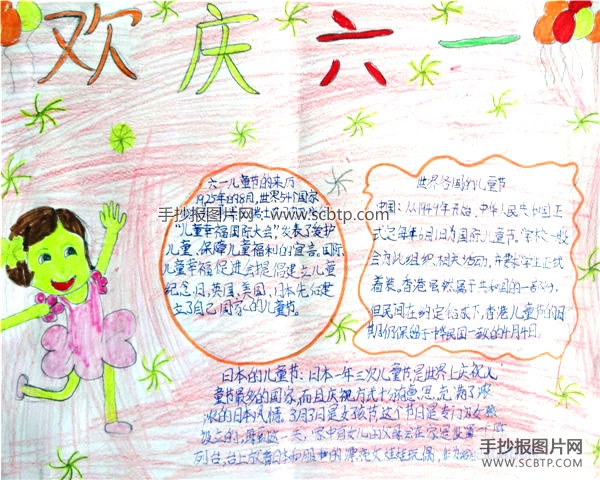 欢庆六一
六一儿童节的来历
1925年的8月,世界54个国家
手抄报图片网 - www.scbtp.com
"儿童幸福国际大会",发表了爱护
儿童、保障儿童福利的宣言。国际
儿童幸福促进会提倡建立儿童
纪念日,英国、美国、日本先后建
立了自己国家的儿童节。
世界各国的儿童节
中国:从1949年开始,中华人民共和国正
式定每年6月1日为国际儿童节。学校一般
会为此组织相关活动,并要求学生正式
着装。香港虽然属于共和国的一部分,
但民间在约定俗成下,香港儿童节的日
期仍保留于中华民国一致的4月4日。
日本的儿童节:日本一年三次儿童节,是世界上庆祝儿
童节最多的国家,而且庆祝方式十分有意思,充满了浓
浓的日本风情。3月3日是女孩节这个节日是专门为女孩
设立的,每到这一天,家中有女儿的父母会在家里设置一个陈
列台,台上放着日本和服的漂亮女娃娃玩偶,
手抄报图片网
WWW.SCBTP.COM